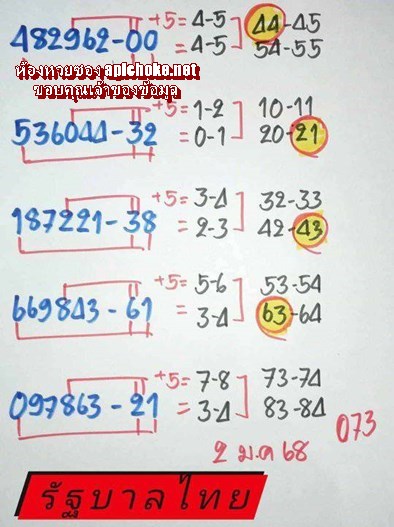 +5= 4-5 44-45
482962-00 = 4-5 54-55
ห้องหวยซองapichoke.net
ขอบคุณเจ้าของข้อมูล
+5= 1-2 10-11
536044-32 = 0-1 20-21
+5= 3-4 32-33
187221-38 = 2-3 42-43
+5= 5-6 53-54
669843-61 = 3-4 63-64
+5= 7-8 73-74
097863-21 = 3-4 83-84
073
2 ม.ค 68
รัฐบาลไทย